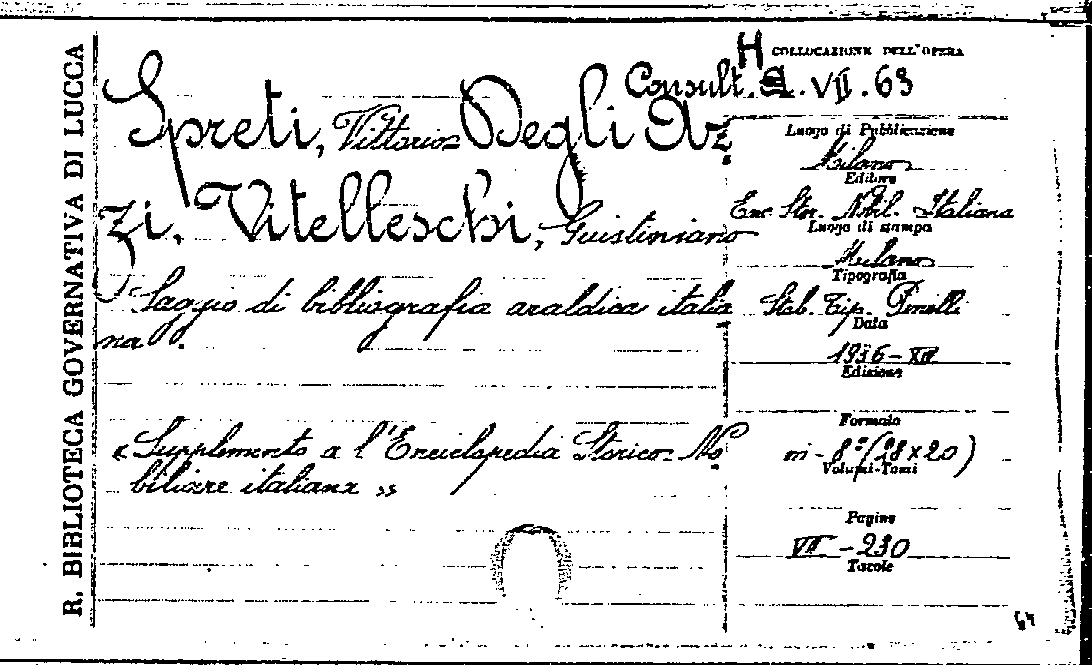 R. BIBLIOTECA GOVERNATIVA DI LUCCA
COLLOCAZIONE DELL'OPERA
Consult. H. VII. 63
Spreti, Vittorio= Degli Az
zi, Vitelleschi, Guistiniano
Saggio di bibliografia araldica italia
na.
«Supplemento a l'Enciclopedia Storico-No
biliare italiana»
Luogo di Pubblicazione
Milano
Editore
Enc. Stor. Nobil. Italiana
Luogo di stampa
Milano
Tipografia
Stab. Tip. Pinelli
Data
1936-XIV
Edizione
Formato
in-8º (28x20)
Volumi-Tomi
Pagine
VII-230
Tavole